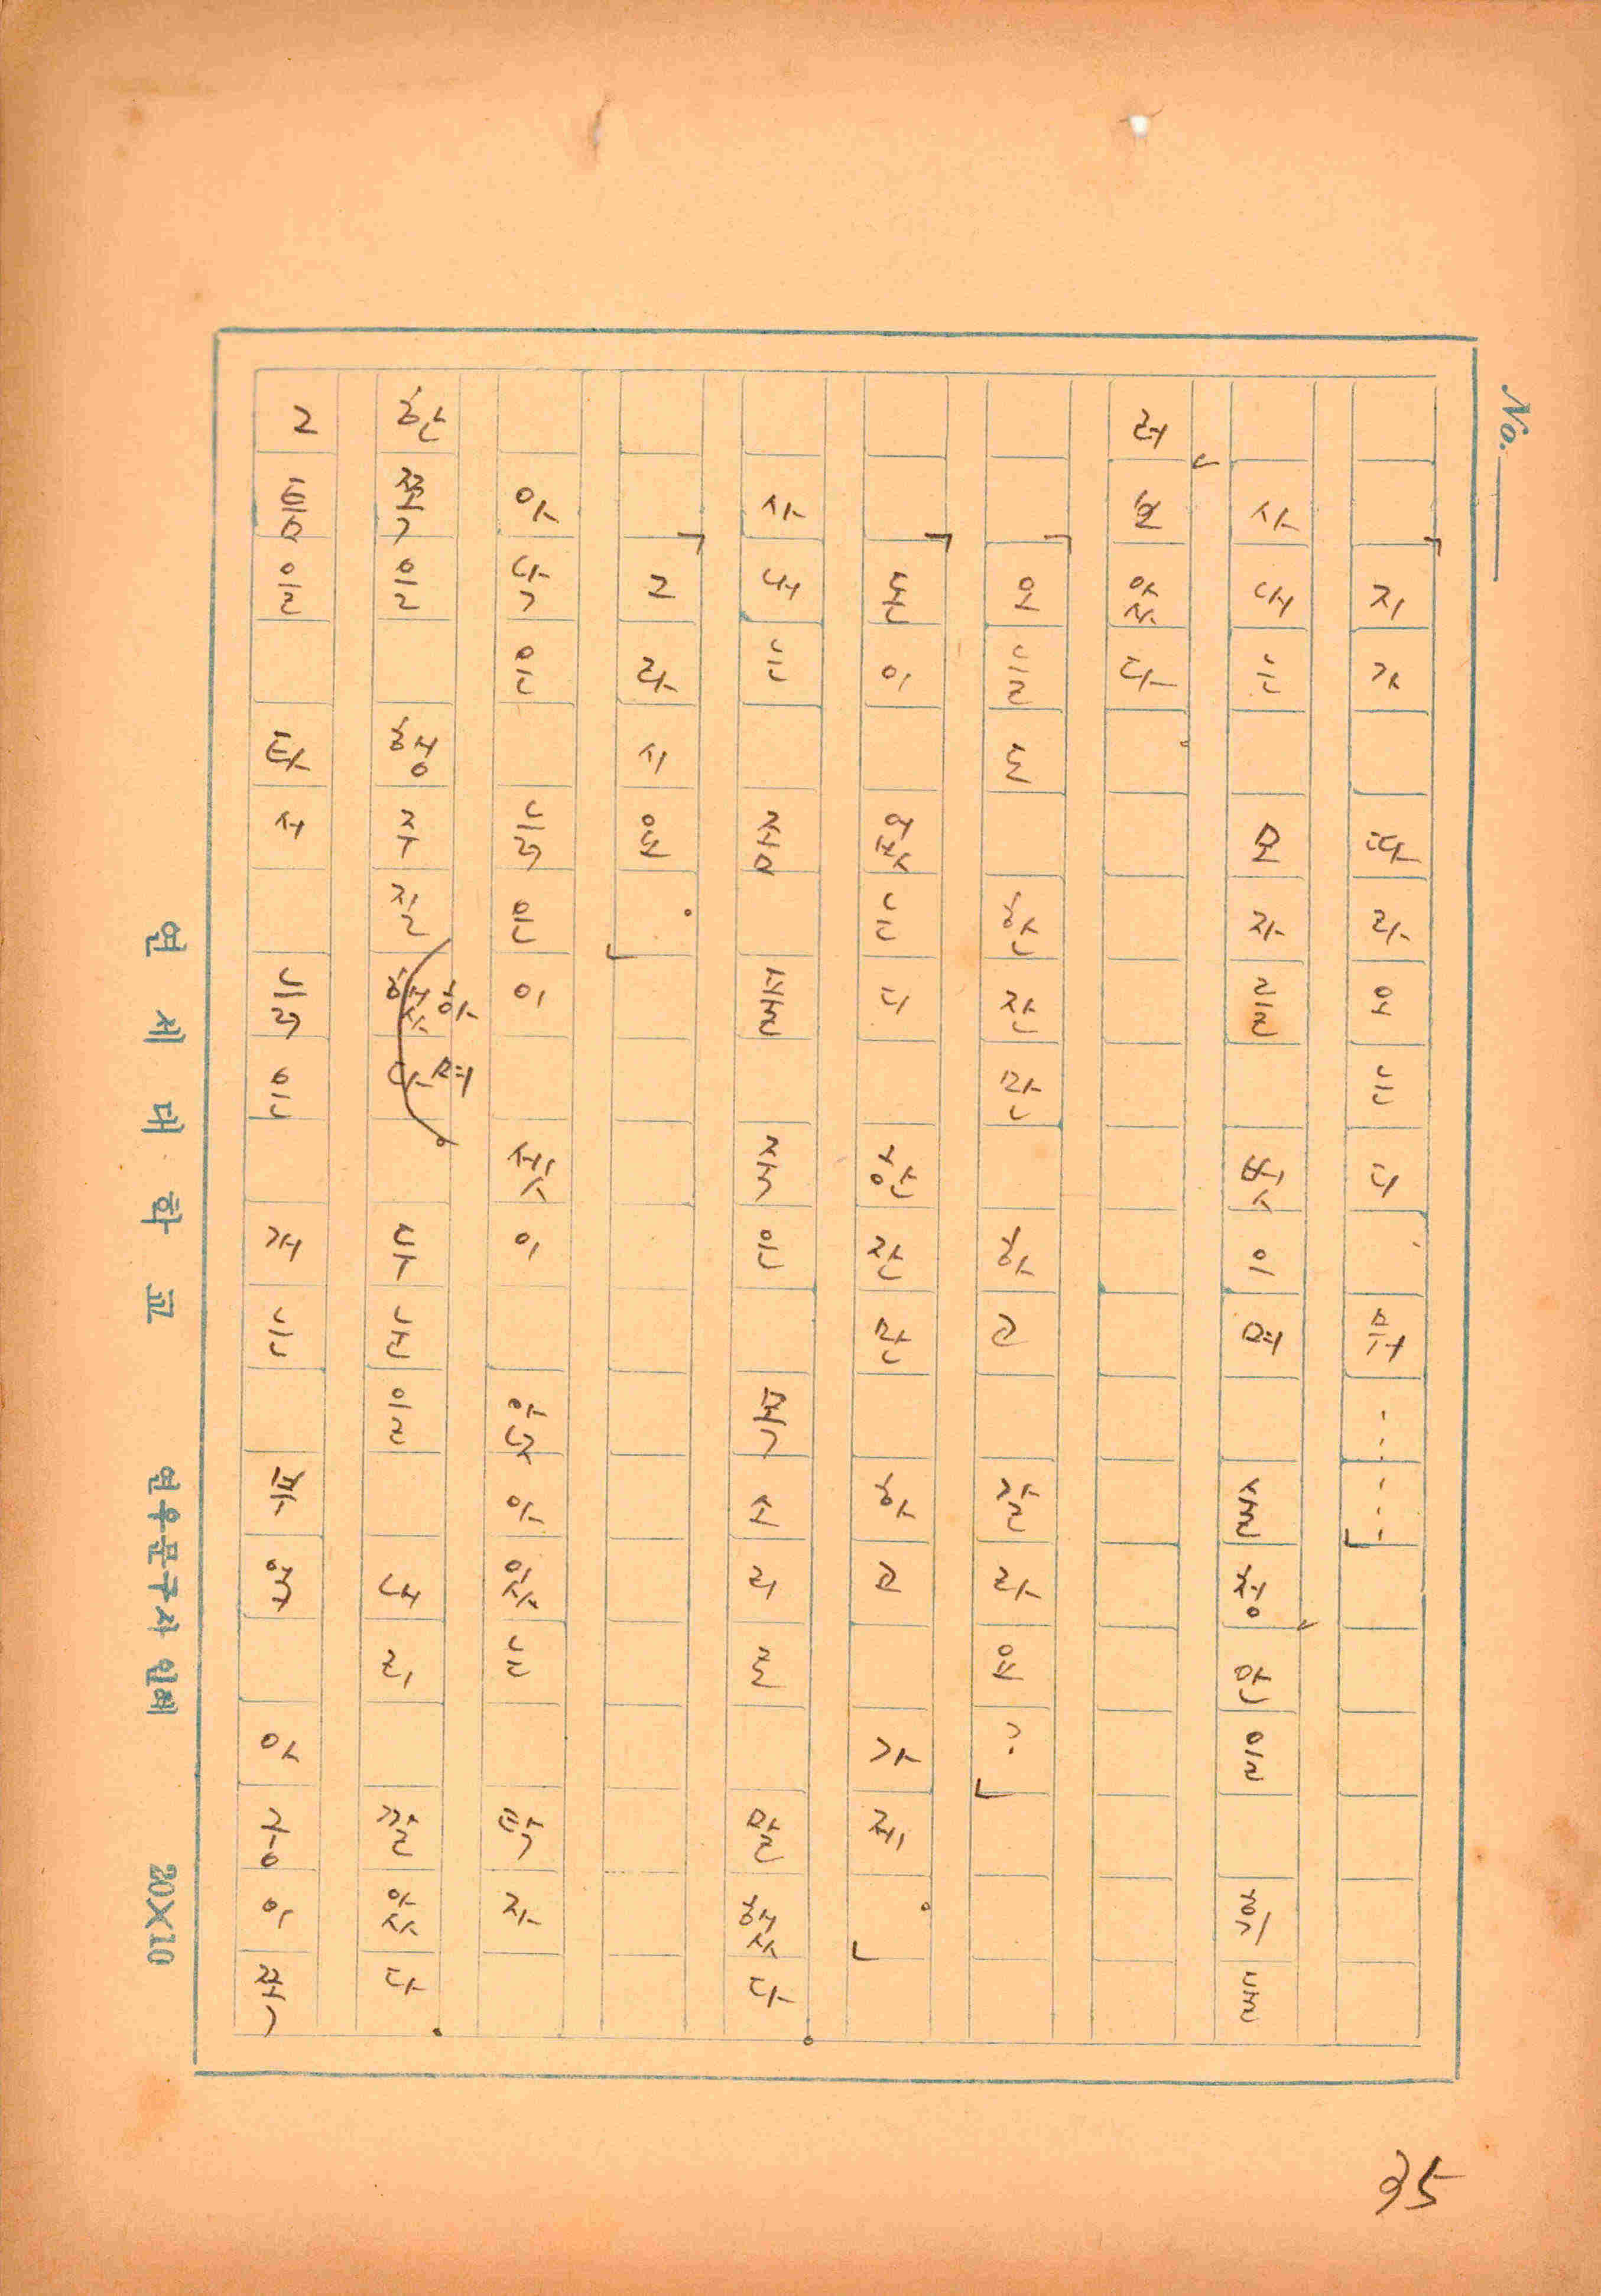 No.
「지가 따라오는디. 뭐……」
사내는 모자를 벗으며 안을 휘둘
러 보았다.
「오늘도 한잔만 하고 갈라요?」
「돈이 없는디 한잔만 하고 가제.」
사내는 좀 죽은 목소리로 말했다.
「그라시온.」
아낙은 늙은이 셋이 앉아 있는 탁자
한쪽을 행주질했다하며 두 눈을 내리 깔았다.
그 틈을 타서 늙은 개는 부엌 아궁이쪽
연세대학교 연우문구사 인쇄 20X10